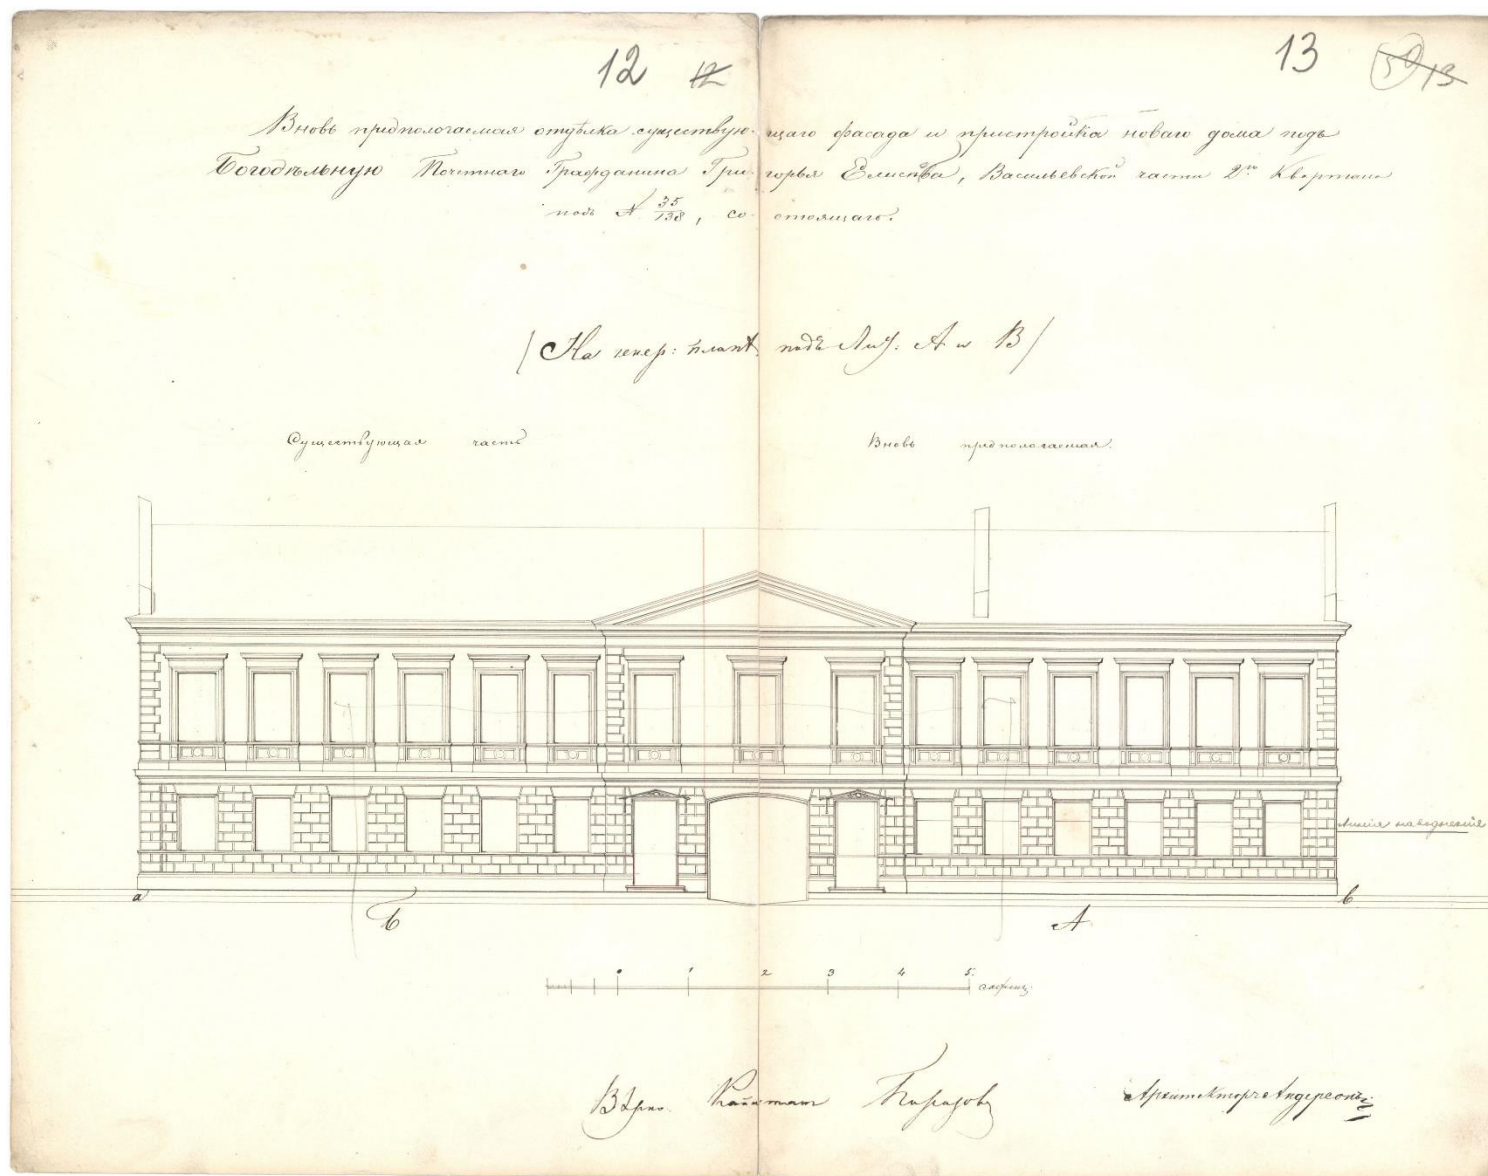 12 12 13 50 13
Вновь предпологаемая отдѣлка существующаго фасада и пристройка новаго дома подъ
Богодѣльную Почетнаго Гражданина Григорья Елисѣева, Васильевской части 2го Квартала
подъ № 35/138, состоящаго.
(На генер: планѣ подъ Лит. А и В)
Существующая часть Вновь предпологаемая.
Линія наводненія
а в
Б А
0 1 2 3 4 5. саженъ.
Вѣрно. Капитанъ
Архитекторъ Андерсонъ